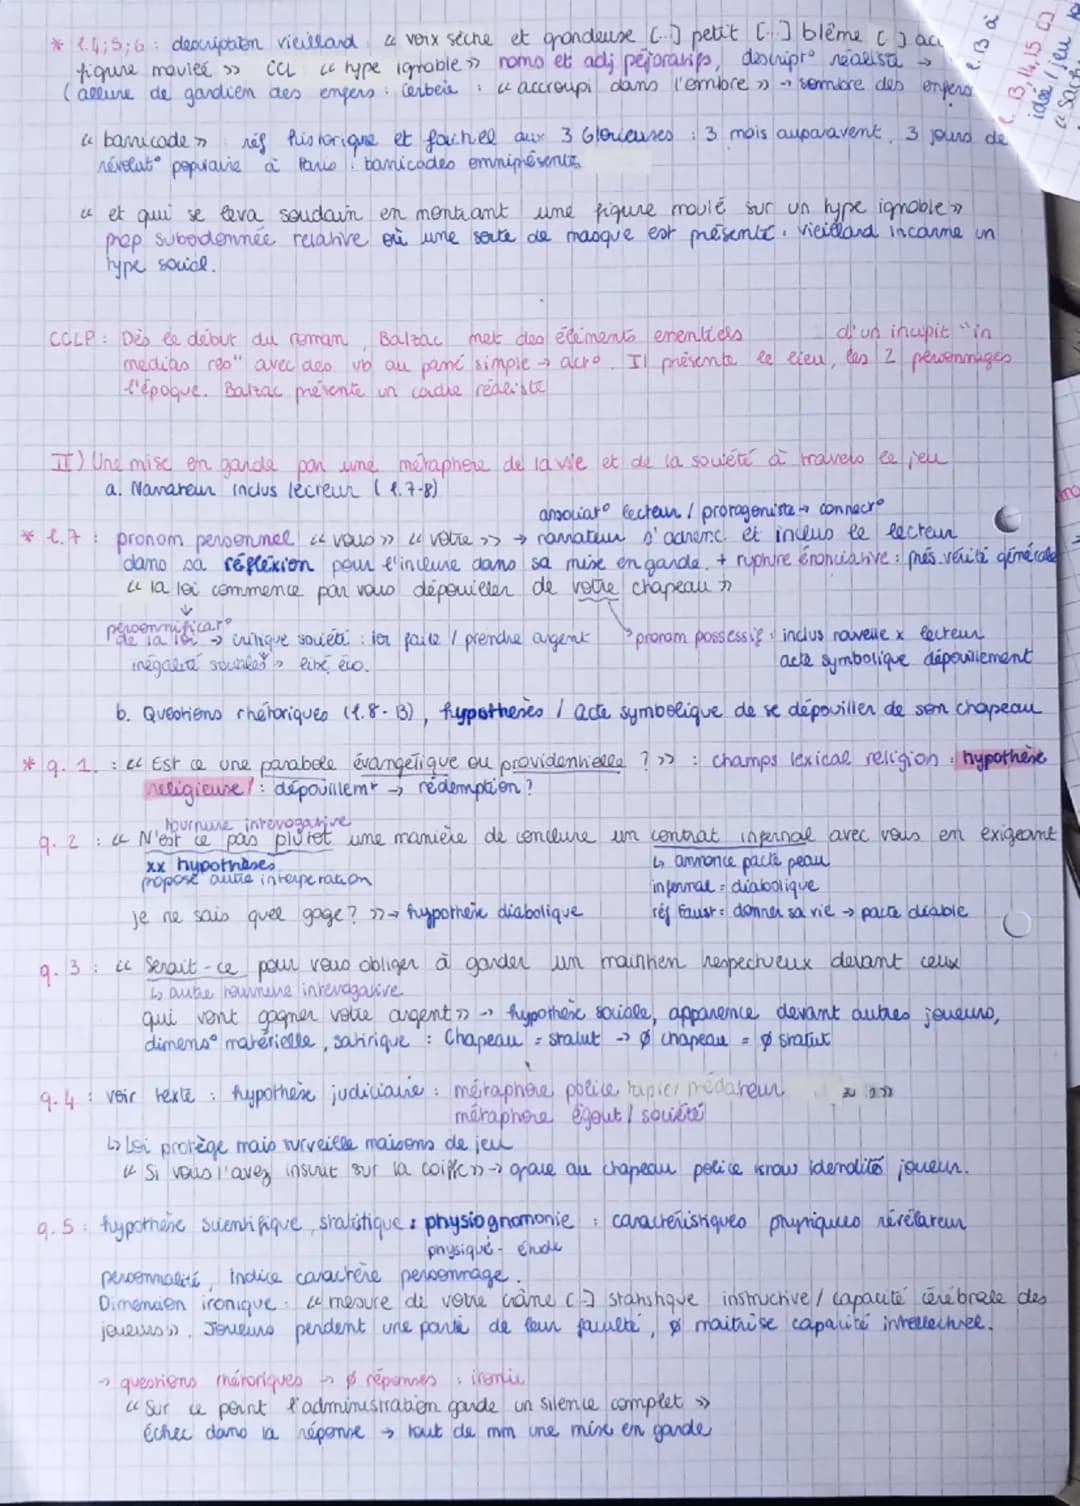 * l.4;5;6 : description vieillard : « voix sèche et grondeuse (..) petit [...] blême ( )
figure moulée » CCL « type ignoble » noms et adj péjoratifs, descript° réaliste →
(allure de gardien des enfers : Cerbère : « accroupi dans l'ombre » → sombre des enfers
« barricade » réf historique et factuel aux 3 Glorieuses : 3 mois auparavent, 3 jours de
révolut° populaire à Paris : barricades omniprésentes
« et qui se leva soudain en montrant une figure moulé sur un type ignoble »
prop subordonnée relative où une sorte de masque est présenté. vieillard incarne un
type social.
CCLP : Dès le début du roman, Balzac met des éléments essentiels d'un incipit "in
medias res" avec des vb au passé simple → act°. Il présente le lieu, les 2 personnages
l'époque. Balzac présente un cadre réaliste
II) Une mise en garde par une métaphore de la vie et de la société à travers le jeu
a. Narrateur inclus lecteur (l.7-8)
associat° lecteur / protagoniste → connect°
* l.7 : pronom personnel « vous » « votre » → narrateur s'adresse et inclus le lecteur
dans sa réflexion pour l'inclure dans sa mise en garde. + rupture énonciative : prés. vérité générale
« la loi commence par vous dépouiller de votre chapeau »
personnificat°
de la loi → critique société : loi faite / prendre argent
pronom possessif : inclus nouvelle x lecteur
inégalité sociales → acte symbolique dépouillement
b. Questions rhétoriques (l.8-13), hypothèses / acte symbolique de se dépouiller de son chapeau
* q.1. : « Est ce une parabole évangélique ou providentielle ? » : champs lexical religion : hypothèse
religieuse / : dépouillemt → rédemption ?
tournure interrogative
q.2 : « N'est ce pas plutôt une manière de conclure un contrat infernal avec vous en exigeant
xx hypothèses
↳ annonce pacte peau
propose autre interpération
infernal = diabolique
je ne sais quel gage ? » → hypothèse diabolique
réf Faust : donner sa vie → pacte diable
q.3 : « Serait-ce pour vous obliger à garder un maintien respectueux devant ceux
↳ autre tournure interrogative
qui vont gagner votre argent » → hypothèse sociale, apparence devant autres joueurs,
dimens° matérielle, satirique : Chapeau = statut → ø chapeau = ø statut
q.4 : voir texte : hypothèse judiciaire : métaphore police
métaphore égout / société
↳ Loi protège mais surveille maisons de jeu
« Si vous l'avez inscrit sur la coiffe » → grâce au chapeau police know identités joueur.
q.5 : hypothèse scientifique, statistique : physiognomonie : caractéristiques physiques révélateur
physique - étude
personnalité, indice caractère personnage.
Dimension ironique : « mesure de votre crâne (..) statistique instructive / capacité cérébrale des
joueurs ». Joueurs perdent une partie de leur faculté, ø maitrise capacité intellectuel.
→ questions rhétoriques → ø réponses : ironie
« Sur ce point l'administration garde un silence complet »
Échec dans la réponse → tout de mm une mise en garde